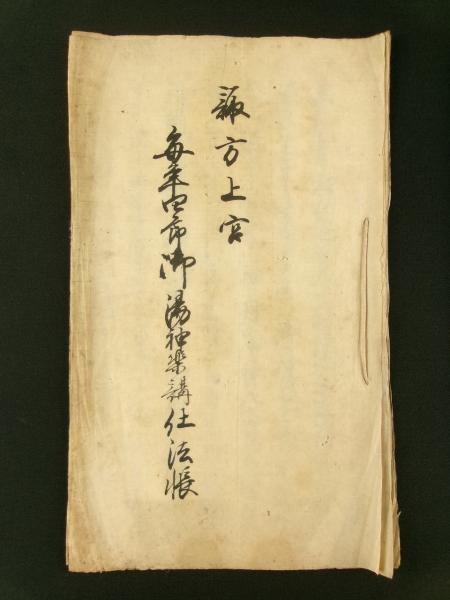 諏方上宮
毎年四節御湯神楽講仕法帳